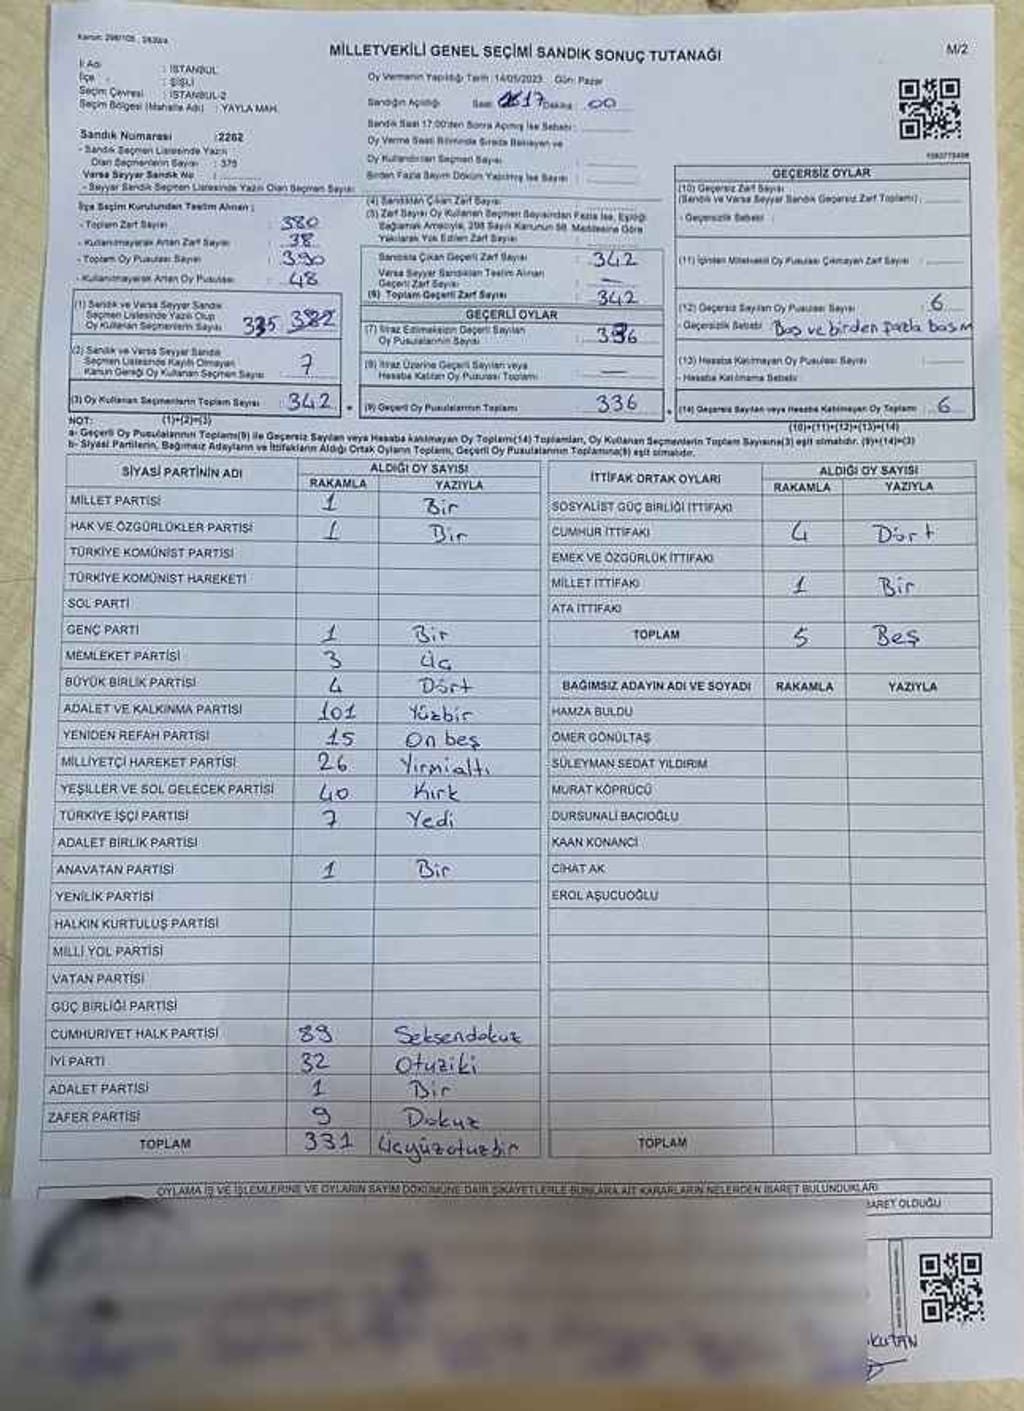 MİLLETVEKİLİ GENEL SEÇİMİ SANDIK SONUÇ TUTANAĞI
M/2
İl Adı : İSTANBUL
İlçe : ŞİŞLİ
Seçim Çevresi : İSTANBUL-2
Seçim Bölgesi (Mahalle Adı) : YAYLA MAH.
Sandık Numarası : 2262
- Sandık Seçmen Listesinde Yazılı
Olan Seçmenlerin Sayısı : 375
Varsa Seyyar Sandık No :
- Seyyar Sandık Seçmen Listesinde Yazılı Olan Seçmen Sayısı:
Oy Vermenin Yapıldığı Tarih :14/05/2023 Gün: Pazar
Sandığın Açıldığı Saat: 17 Dakika : 00
Sandık Saat 17:00'den Sonra Açılmış İse Sebebi :
Oy Verme Saati Bitiminde Sırada Bekleyen ve
Oy Kullandırılan Seçmen Sayısı :
Birden Fazla Sayım Döküm Yapılmış İse Sayısı :
İlçe Seçim Kurulundan Teslim Alınan :
- Toplam Zarf Sayısı : 380
- Kullanılmayarak Artan Zarf Sayısı : 38
- Toplam Oy Pusulası Sayısı : 390
- Kullanılmayarak Artan Oy Pusulası : 48
(1) Sandık ve Varsa Seyyar Sandık
Seçmen Listesinde Yazılı Olup
Oy Kullanan Seçmenlerin Sayısı 335
(2) Sandık ve Varsa Seyyar Sandık
Seçmen Listesinde Kayıtlı Olmayan
Kanun Gereği Oy Kullanan Seçmen Sayısı : 7
(3) Oy Kullanan Seçmenlerin Toplam Sayısı : 342
(1)+(2)=(3)
(4) Sandıktan Çıkan Zarf Sayısı
(5) Zarf Sayısı Oy Kullanan Seçmen Sayısından Fazla İse, Eşitliği
Sağlamak Amacıyla, 298 Sayılı Kanunun 98. Maddesine Göre
Yakılarak Yok Edilen Zarf Sayısı
Sandıkta Çıkan Geçerli Zarf Sayısı : 342
Varsa Seyyar Sandıktan Teslim Alınan
Geçerli Zarf Sayısı : —
(6) Toplam Geçerli Zarf Sayısı : 342
GEÇERLİ OYLAR
(7) İtiraz Edilmeksizin Geçerli Sayılan
Oy Pusulalarının Sayısı : 336
(8) İtiraz Üzerine Geçerli Sayılan veya
Hesaba Katılan Oy Pusulası Toplamı : —
(9) Geçerli Oy Pusulalarının Toplamı : 336
GEÇERSİZ OYLAR
(10) Geçersiz Zarf Sayısı
(Sandık ve Varsa Seyyar Sandık Geçersiz Zarf Toplamı) :
- Geçersizlik Sebebi :
(11) İçinden Milletvekili Oy Pusulası Çıkmayan Zarf Sayısı :
(12) Geçersiz Sayılan Oy Pusulası Sayısı : 6
- Geçersizlik Sebebi : Boş ve birden fazla basım
(13) Hesaba Katılmayan Oy Pusulası Sayısı :
- Hesaba Katılmama Sebebi :
(14) Geçersiz Sayılan veya Hesaba Katılmayan Oy Toplamı : 6
(10)+(11)+(12)+(13)=(14)
NOT:
a- Geçerli Oy Pusulalarının Toplamı(9) ile Geçersiz Sayılan veya Hesaba katılmayan Oy Toplamı(14) Toplamları, Oy Kullanan Seçmenlerin Toplam Sayısına(3) eşit olmalıdır. (9)+(14)=(3)
b- Siyasi Partilerin, Bağımsız Adayların ve İttifakların Aldığı Ortak Oyların Toplamı, Geçerli Oy Pusulalarının Toplamına(9) eşit olmalıdır.
SİYASİ PARTİNİN ADI ALDIĞI OY SAYISI
RAKAMLA YAZIYLA
MİLLET PARTİSİ 1 Bir
HAK VE ÖZGÜRLÜKLER PARTİSİ 1 Bir
TÜRKİYE KOMÜNİST PARTİSİ
TÜRKİYE KOMÜNİST HAREKETİ
SOL PARTİ
GENÇ PARTİ 1 Bir
MEMLEKET PARTİSİ 3 Üç
BÜYÜK BİRLİK PARTİSİ 4 Dört
ADALET VE KALKINMA PARTİSİ 101 Yüzbir
YENİDEN REFAH PARTİSİ 15 On beş
MİLLİYETÇİ HAREKET PARTİSİ 26 Yirmialtı
YEŞİLLER VE SOL GELECEK PARTİSİ 40 Kırk
TÜRKİYE İŞÇİ PARTİSİ 7 Yedi
ADALET BİRLİK PARTİSİ
ANAVATAN PARTİSİ 1 Bir
YENİLİK PARTİSİ
HALKIN KURTULUŞ PARTİSİ
MİLLİ YOL PARTİSİ
VATAN PARTİSİ
GÜÇ BİRLİĞİ PARTİSİ
CUMHURİYET HALK PARTİSİ 89 Seksendokuz
İYİ PARTİ 32 Otuziki
ADALET PARTİSİ 1 Bir
ZAFER PARTİSİ 9 Dokuz
TOPLAM 331 Üçyüzotuzbir
İTTİFAK ORTAK OYLARI ALDIĞI OY SAYISI
RAKAMLA YAZIYLA
SOSYALİST GÜÇ BİRLİĞİ İTTİFAKI
CUMHUR İTTİFAKI 4 Dört
EMEK VE ÖZGÜRLÜK İTTİFAKI
MİLLET İTTİFAKI 1 Bir
ATA İTTİFAKI
TOPLAM 5 Beş
BAĞIMSIZ ADAYIN ADI VE SOYADI RAKAMLA YAZIYLA
HAMZA BULDU
ÖMER GÖNÜLTAŞ
SÜLEYMAN SEDAT YILDIRIM
MURAT KÖPRÜCÜ
DURSUNALİ BACIOĞLU
KAAN KONANCI
CİHAT AK
EROL AŞUCUOĞLU
TOPLAM
OYLAMA İŞ VE İŞLEMLERİNE VE OYLARIN SAYIM DÖKÜMÜNE DAİR ŞİKAYETLERLE BUNLARA AİT KARARLARIN NELERDEN İBARET BULUNDUKLARI
BARET OLDUĞU